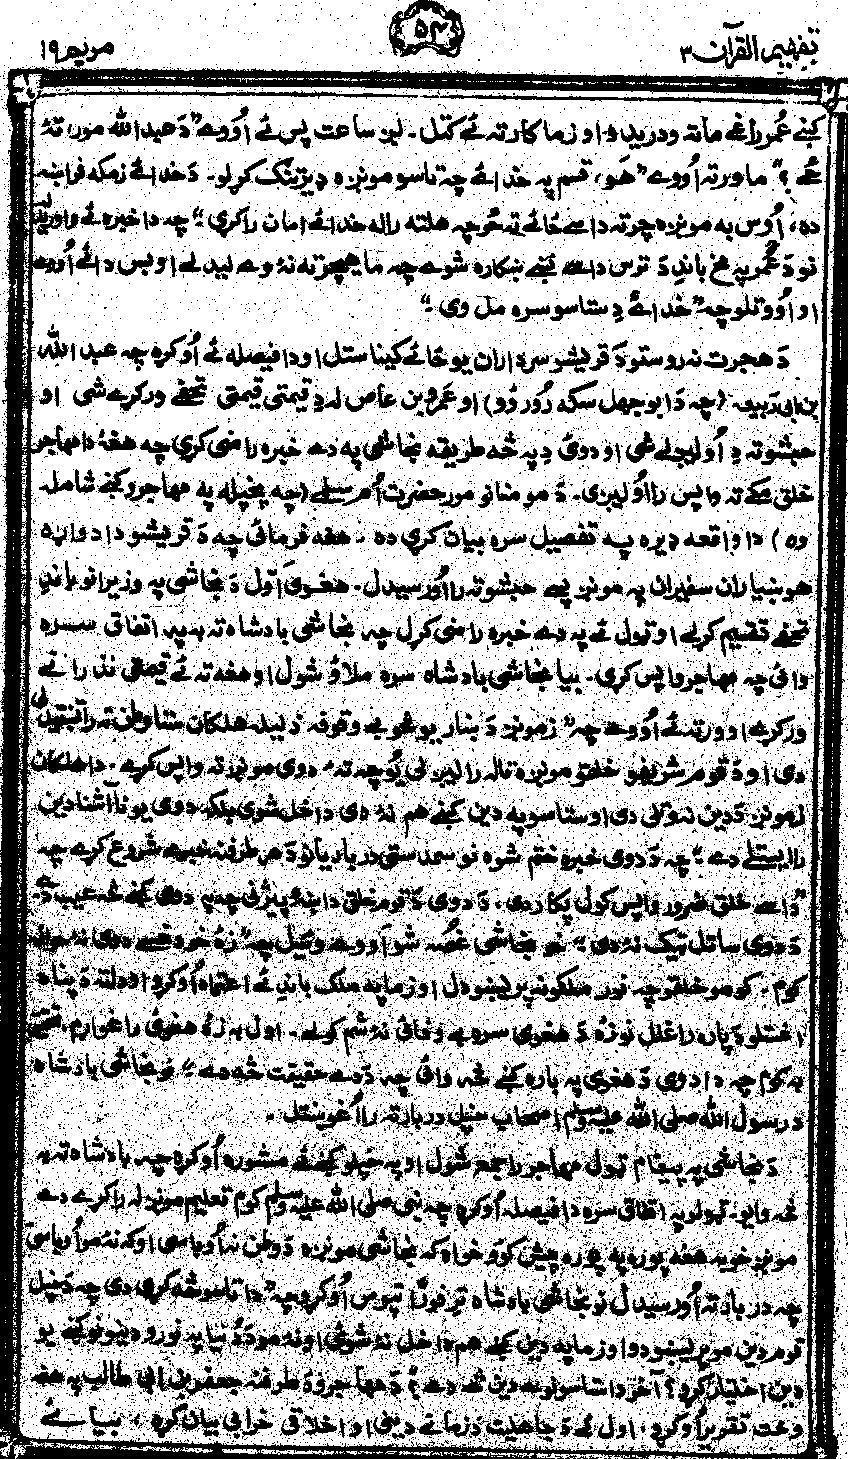 تفهیم القرآن ۳
۵۴
مریم ۱۹
کښے عُمر راغے ماته ودریدو او زما کار ته ئے کتل۔ لږ ساعت پس ئے اُووے "دَ عبد الله مور، تهٔ
ځے؟" ما ورته اُووے "هَو، قسم په خدائے چه تاسو مونږه ډیر تنګ کړلو۔ دَ خدائے زمکه فراخه
ده، اُوس به مونږه چرته داسے ځائے ته ځو چه هلته راله خدائے امان راکړی" چه دا خبره ئے واوریده
نو دَ عُمر په مخ باندِ دَ ترس داسے نښے ښکاره شوے چه ما هیچرته نهٔ وے لیدلے او بس دائے اُووے
او اُووتلو چه "خدائے دِ ستاسو سره مل وی۔"
دَ هجرت نه روستو دَ قریشو سرداران یو ځائے کیناستل او دا فیصله ئے اُوکړه چه عبد الله
بن ابی ربیعه (چه دَ ابو جهل سکه رُور وُو) او عمرو بن عاص له دِ قیمتی قیمتی تحفے ورکړے شی او
حبشو ته دِ اُولیږلے شی او دوی دِ په څه طریقه نجاشی په دے خبره راضی کړی چه هغهٔ دا مهاجر
خلق مکے ته واپس رااُولیږی۔ دَ مومنانو مور حضرت اُم سلمے (چه پخپله په مهاجرو کښے شامله
وه) دا واقعه ډیره په تفصیل سره بیان کړی ده۔ هغه فرمائی چه دَ قریشو دا دواړه
هوښیاران سفیران په مونږ پسے حبشو ته رااُورسیدل۔ هغوی اوّل دَ نجاشی په وزیرانو باندِ
تحفے تقسیم کړلے او ټول ئے په دے خبره راضی کړل چه نجاشی بادشاه ته به په اتفاق سره
وائی چه مهاجر واپس کړی۔ بیا نجاشی بادشاه سره ملاؤ شول او هغه ته ئے قیمتی نذرانے
ورکړے او ورته ئے اُووے چه "زمونږ دَ ښار یو څو بے وقوفه هلکان ستا وطن ته راتښتیدلی
دی او دَ قوم شریفو خلقو مونږه تاله رالیږلی یُو چه ته دوی مونږ ته واپس کړے۔ دا هلکان
زمونږ دَ دین نه وتلی دی او ستاسو په دین کښے هم نهٔ دی داخل شوی بلکه دوی یو ناآشنا دین
راایستلے دے" چه دَ دوی خبره ختم شوه نو سمدستی درباریانو دَ هر طرفنه خبرے شروع کړے چه
"داسے خلق ضرور واپس کول پکار دی۔ دَ دوی دَ قوم خلق دا ښهٔ پیژنی چه په دوی کښے څه عیب دے
دَ دوی ساتل ټیک نهٔ دی" خو نجاشی غُصّه شو او وے وئیل چه "زهٔ خو دغسے دوی نهٔ حواله
کوم۔ کومو خلقو چه نور ملکونه پریښودل او زما په ملک باندِ ئے اعتماد اُوکړو او دلته دَ پناه
اخستلو دَپاره راغلل نو زهٔ دَ هغوی سره بے وفائی نهٔ شم کولے۔ اول به زهٔ هغوی راغواړم تحقیق
به کوم چه دا دوی دَ هغوی په باره کښے څه وائی چه دَ دے حقیقت څه دے" نو نجاشی بادشاه
دَ رسول الله صلی الله علیه وسلم اصحاب خپل دربار ته رااُغوښتل۔
دَ نجاشی په پیغام ټول مهاجر راجمع شول او په خپلو کښے ئے مشوره اُوکړه چه بادشاه ته به
څه وایو۔ ټولو په اتفاق سره دا فیصله اُوکړه چه نبی صلی الله علیه وسلم کوم تعلیم مونږ له راکړے دے
مونږ خو به هغه پوره په پوره پیش کوؤ خواه که نجاشی مونږه دَ وطن نه اُوباسی او که نهٔ مو اُوباسی
چه دربار ته اُورسیدل نو نجاشی بادشاه ترِ فوراً تپوس اُوکړو چه "دا تاسو څه کړی دی چه دَ خپل
قوم دین مو پریښودو او زما په دین کښے هم داخل نهٔ شوئی او نهٔ مو دَ دُنیا په نورو دینونو کښے یو
دین اختیار کړو؟ آخر دا ستاسو نوے دین څه دے؟" دَ مهاجرو دَ طرفنه جعفر بن ابی طالب په هغه
وخت تقریر اُوکړو، اول ئے دَ جاهلیت دَ زمانے دینی او اخلاقی خرابی بیان کړه، بیا ئے